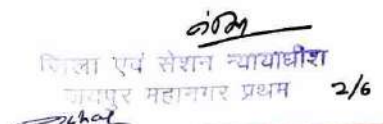 जिला एवं सेशन न्यायाधीश
जयपुर महानगर प्रथम 2/6